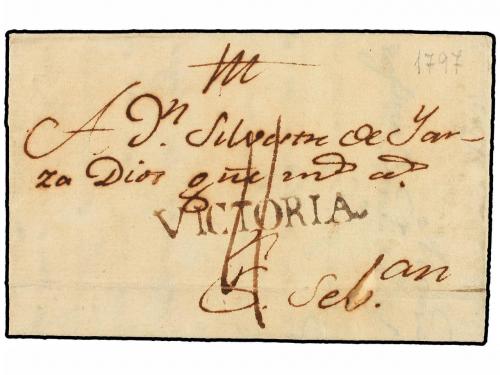 1797
A Dn. Silvestre de Yar-
za Dios gũe ms. as.
VICTORIA
S. Seb.an